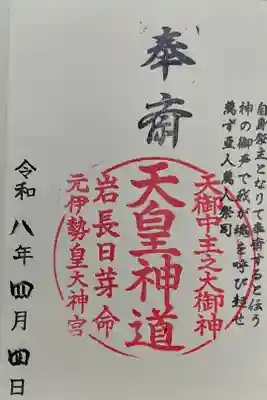 奉斎
自身祭主となりて奉斎すると伝う
神の御声で我が魂を呼び起せ
萬ず亜人萬人祭司
天御中主之大御神
天皇神道
岩長日芽命
元伊勢皇大神宮
令和八年四月四日